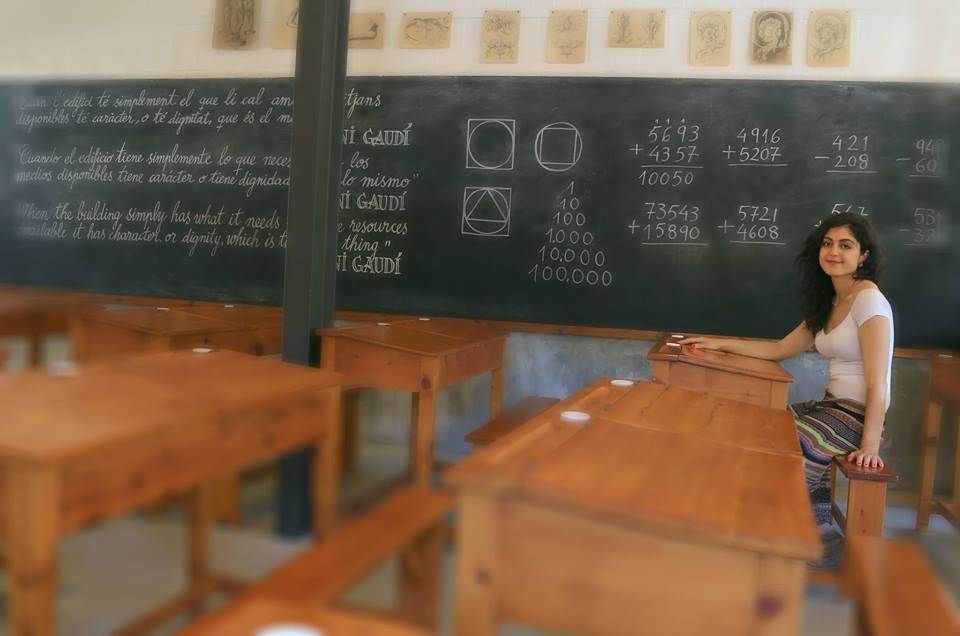 Quan l'edifici té simplement el que li cal am tjans
disponibles té caràcter, o té dignitat, que és el m
NÍ GAUDÍ
Cuando el edificio tiene simplemente lo que neces los
medios disponibles tiene carácter o tiene dignidad lo mismo"
NÍ GAUDÍ
When the building simply has what it needs e resources
available it has character, or dignity, which is t thing"
NÍ GAUDÍ
1
100
1.000
10.000
100.000
5693
+ 4357
10050
4916
+5207
421
- 208
94
- 60
73543
+15890
5721
+ 4608
53
- 32